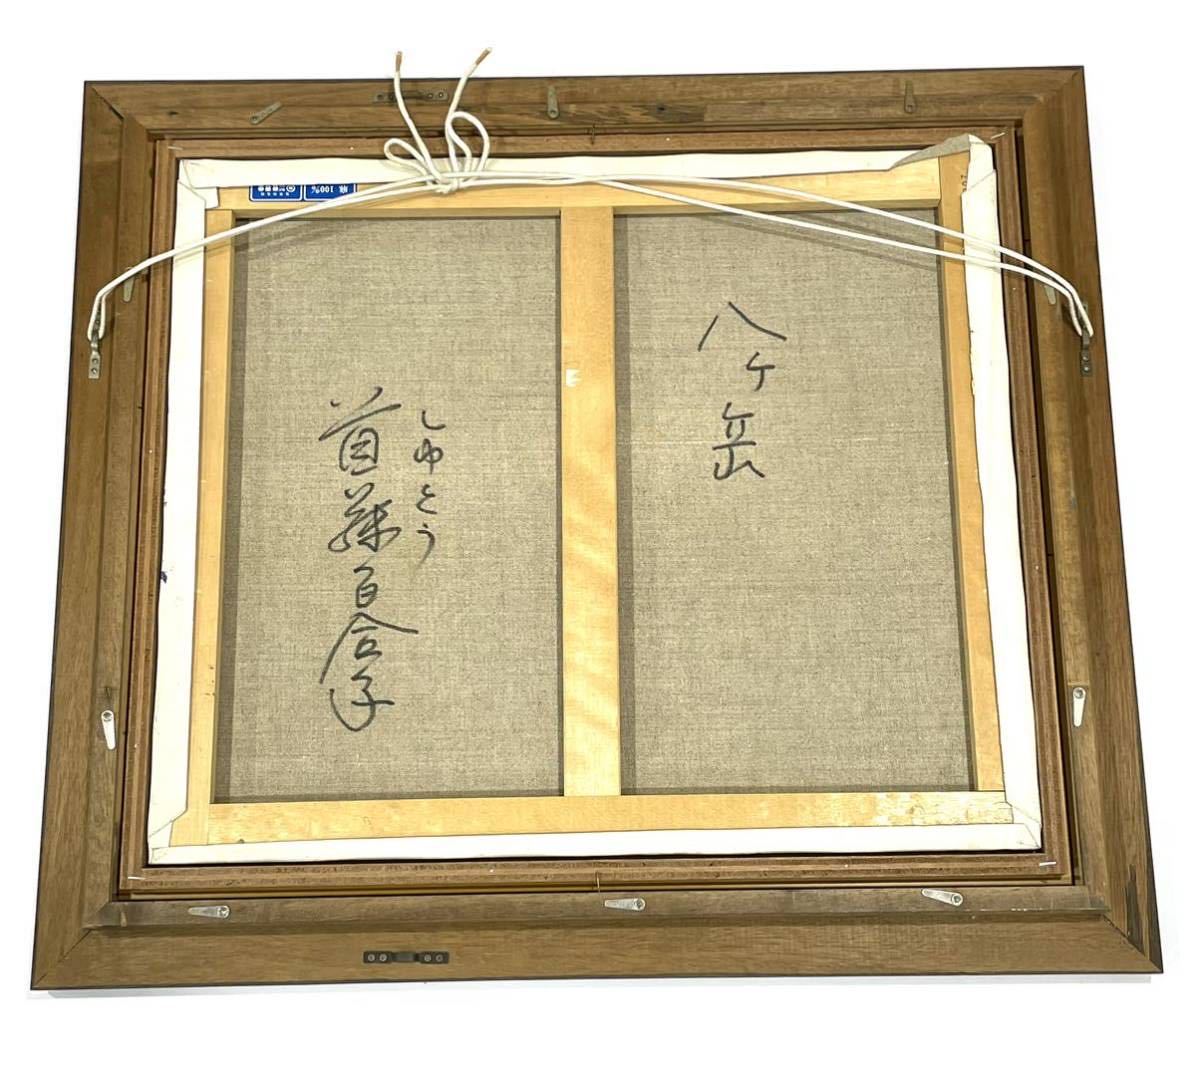 八ヶ岳
しゅとう
首藤百合子
麻 100%